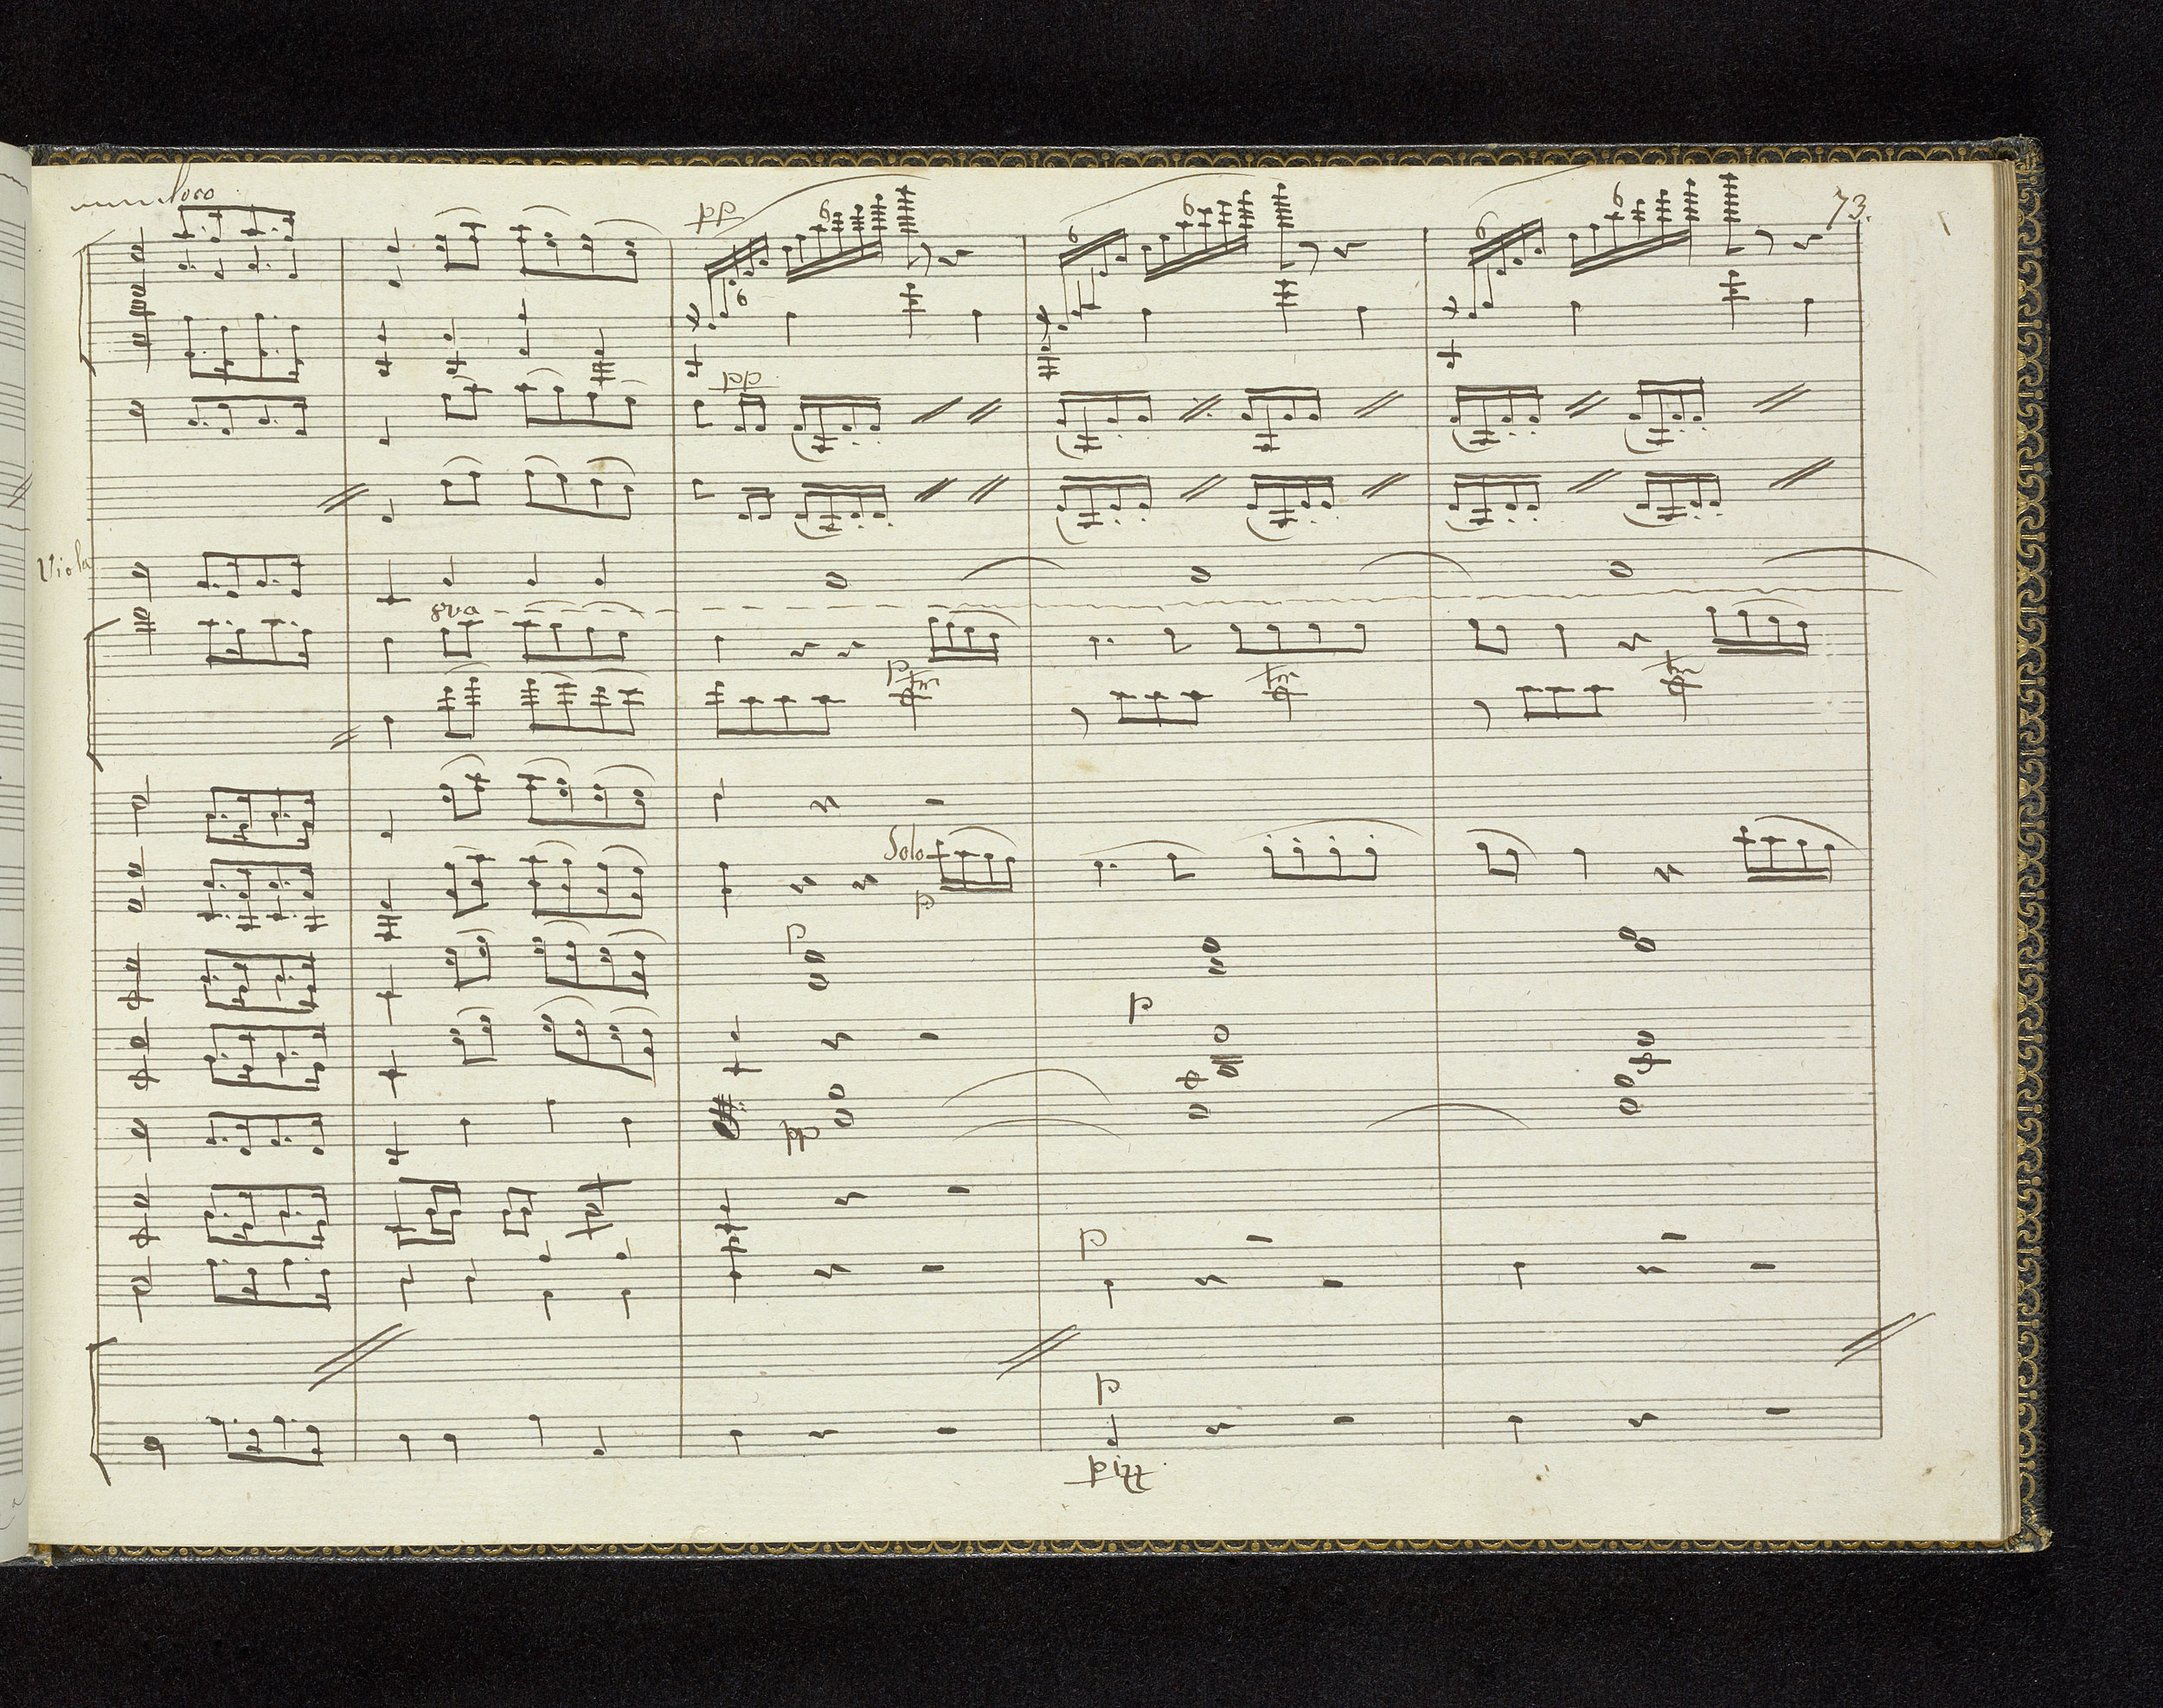 loco
73.
pp
6
6
6
6
6
6
pp
Viola
8va
p
tr
tr
tr
Solo
p
p
p
pp
p
p
pizz.